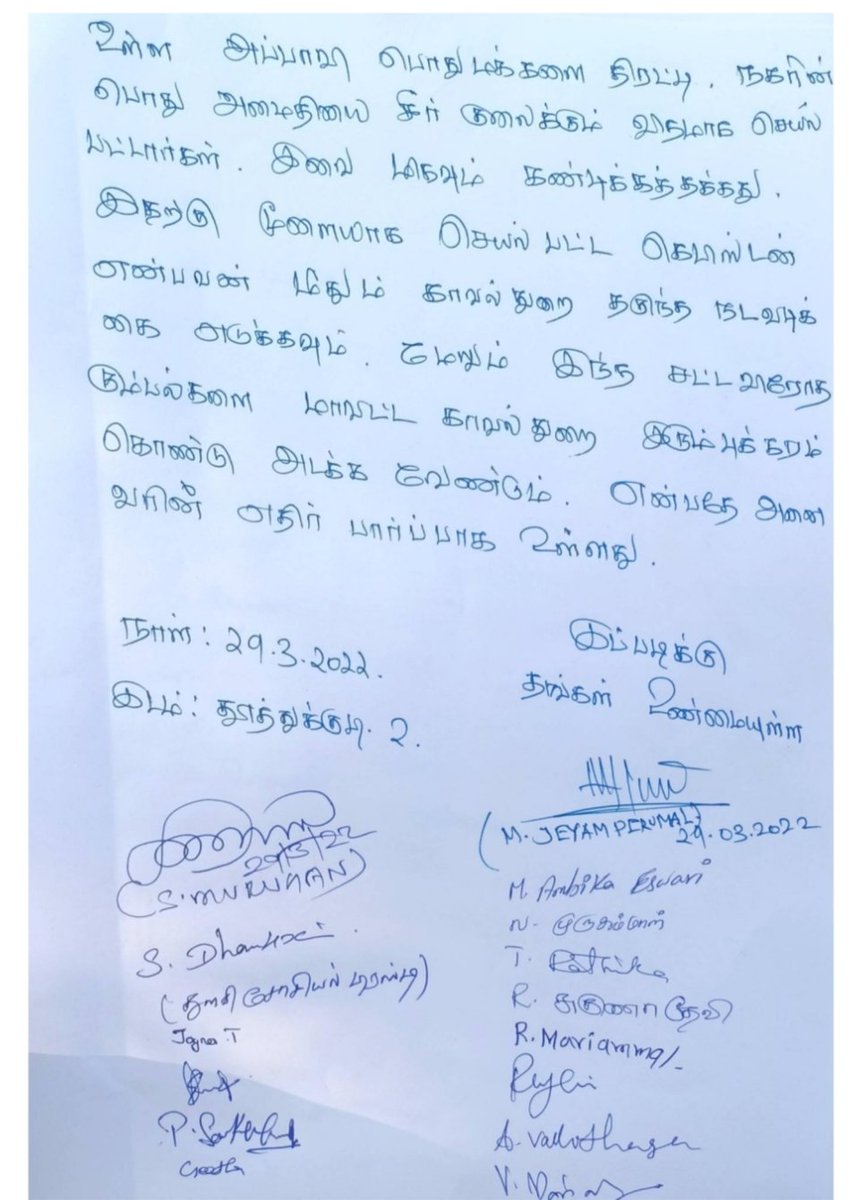 உள்ள அப்பாவி பொதுமக்களை திரட்டி. நகரின்
பொது அமைதியை சீர் குலைக்கும் விதமாக செயல்
பட்டார்கள். இவை மிகவும் கண்டிக்கத்தக்கது.
இதற்கு மூளையாக செயல் பட்ட
என்பவன் மீதும் காவல் துறை தகுந்த நடவடிக்
கை எடுக்கவும். மேலும் இந்த சட்ட விரோத
கும்பல்களை மாவட்ட காவல் துறை இரும்புக்கரம்
கொண்டு அடக்க வேண்டும். என்பதே அனை
வரின் எதிர் பார்ப்பாக உள்ளது.
நாள்: 29.3.2022.
இடம்: தூத்துக்குடி. 2.
இப்படிக்கு
தங்கள் உண்மையுள்ள
(M. JEYAMPERUMAL)
29.03.2022
29/3/22
(S. MURUGAN)
S.
(துளசி சோசியல் டிரஸ்டி)
M. Ambika Eswari
N. முருகம்மாள்
T. Rathika
R. சுகுணா தேவி
R. Mariammal
P.
Geetha
A.
V.